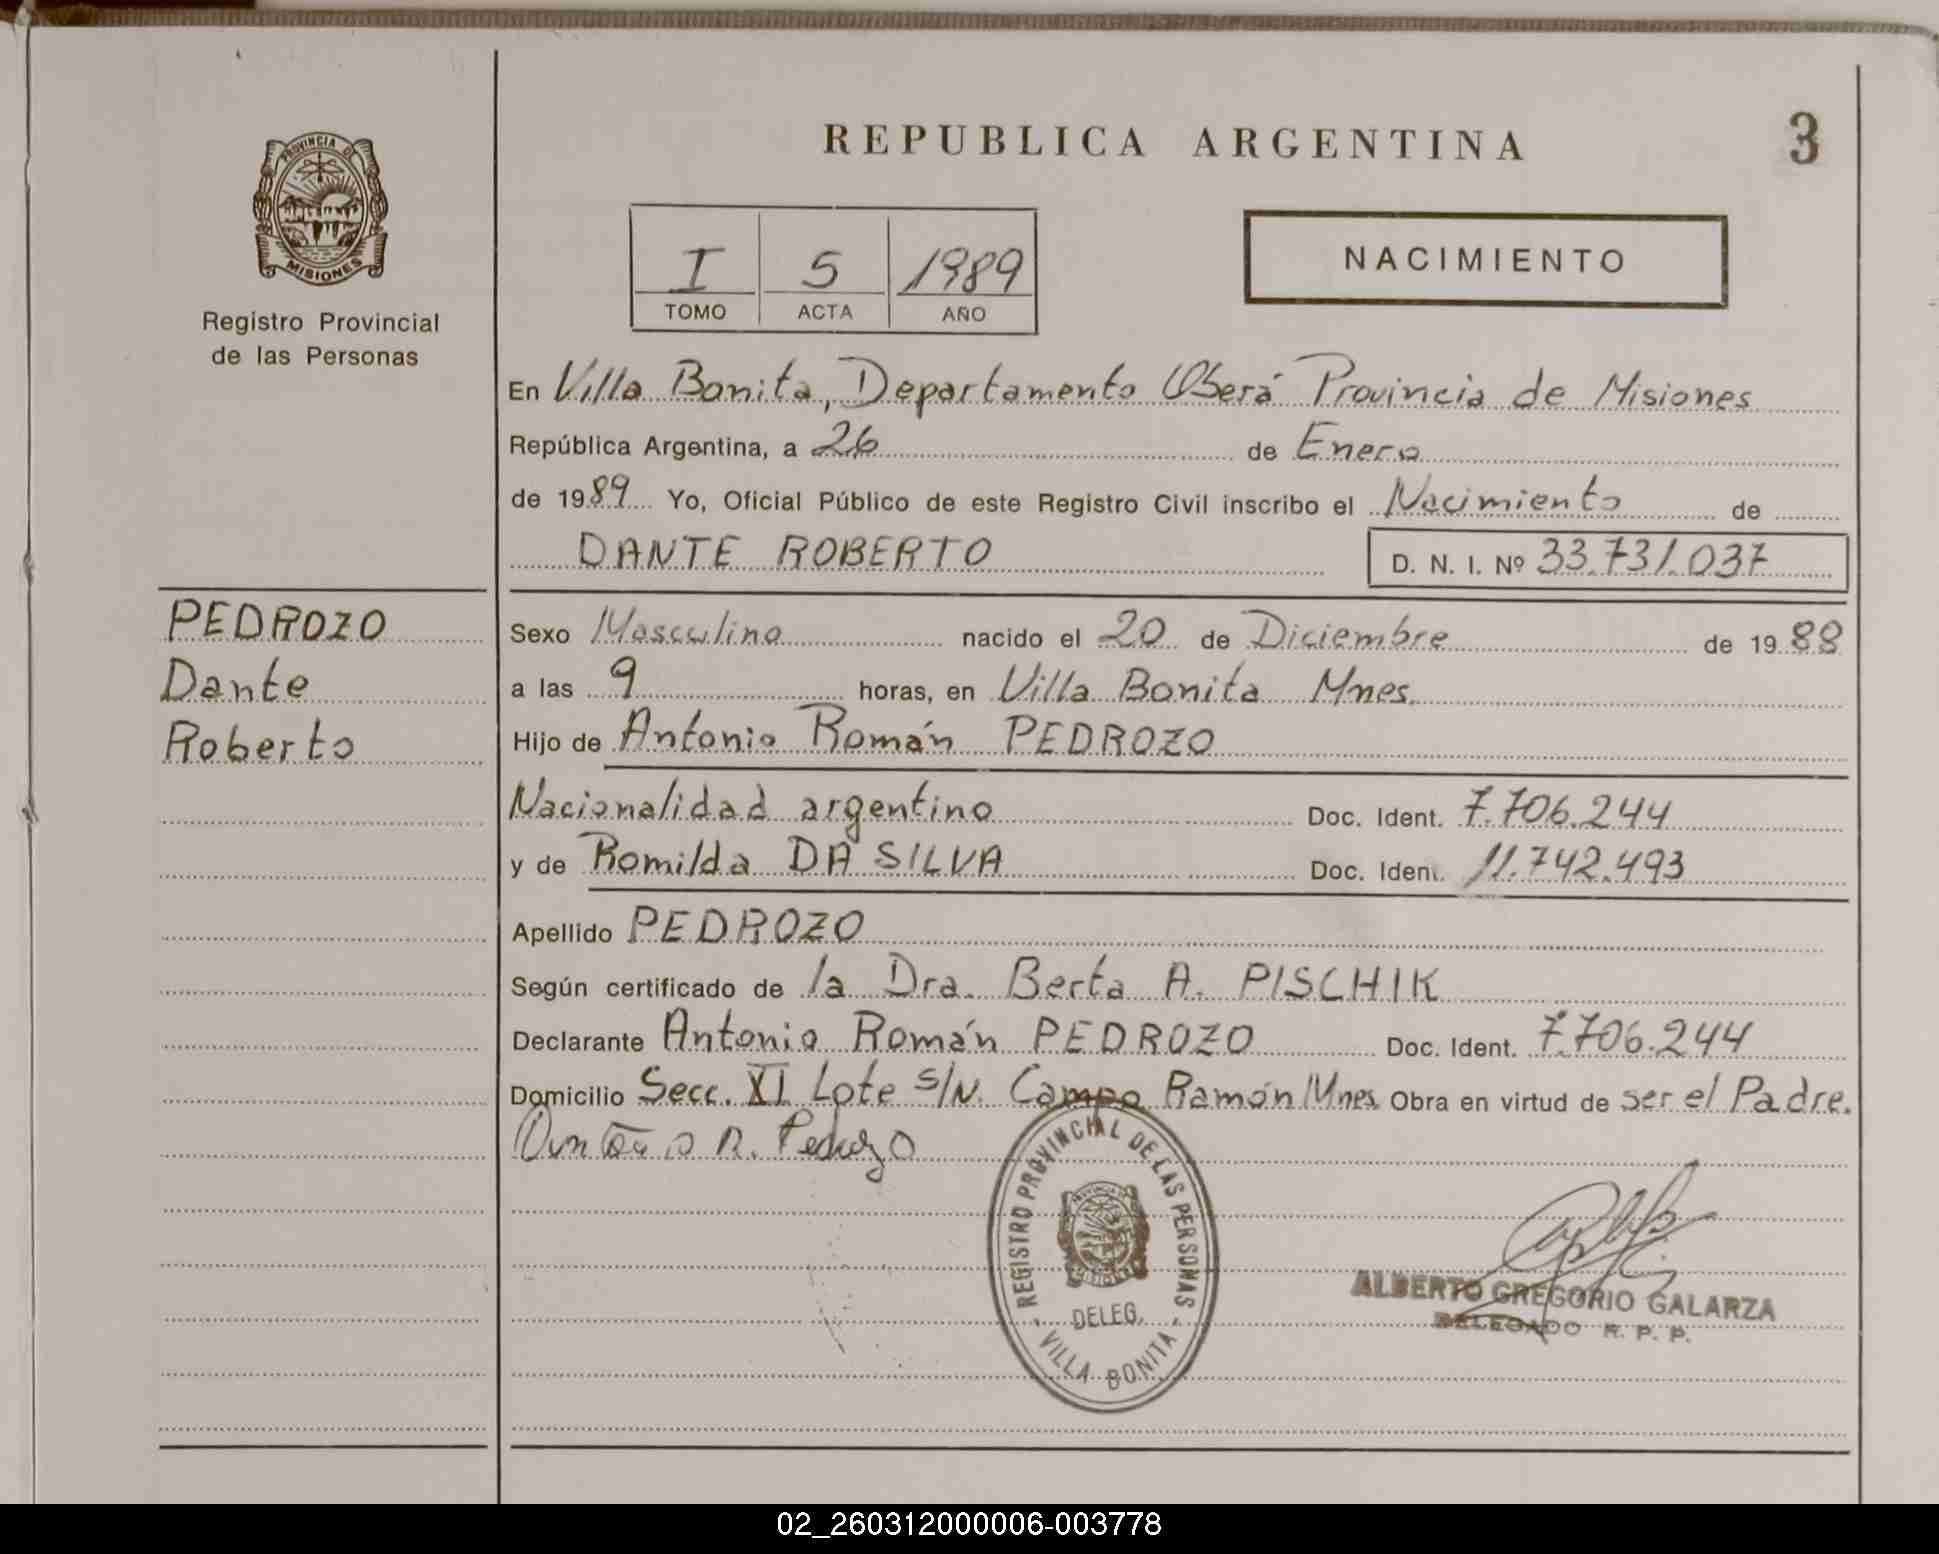 REPUBLICA ARGENTINA
3
PROVINCIA DE
MISIONES
Registro Provincial
de las Personas
I 5 1989
TOMO ACTA AÑO
NACIMIENTO
En Villa Bonita, Departamento Oberá Provincia de Misiones
República Argentina, a 26 de Enero
de 1989 Yo, Oficial Público de este Registro Civil inscribo el Nacimiento de
DANTE ROBERTO D. N. I. Nº 33.731.037
PEDROZO
Dante
Roberto
Sexo Masculino nacido el 20 de Diciembre de 1988
a las 9 horas, en Villa Bonita Mnes.
Hijo de Antonio Román PEDROZO
Nacionalidad argentino Doc. Ident. 7.706.244
y de Romilda DA SILVA Doc. Ident. 11.742.493
Apellido PEDROZO
Según certificado de la Dra. Berta A. PISCHIK
Declarante Antonio Román PEDROZO Doc. Ident. 7.706.244
Domicilio Secc. XI Lote s/N. Campo Ramón Mnes. Obra en virtud de ser el Padre.
R. Pedrozo
REGISTRO PROVINCIAL DE LAS PERSONAS
DELEG.
- VILLA BONITA -
ALBERTO GREGORIO GALARZA
DELEGADO R. P. P.
02_260312000006-003778